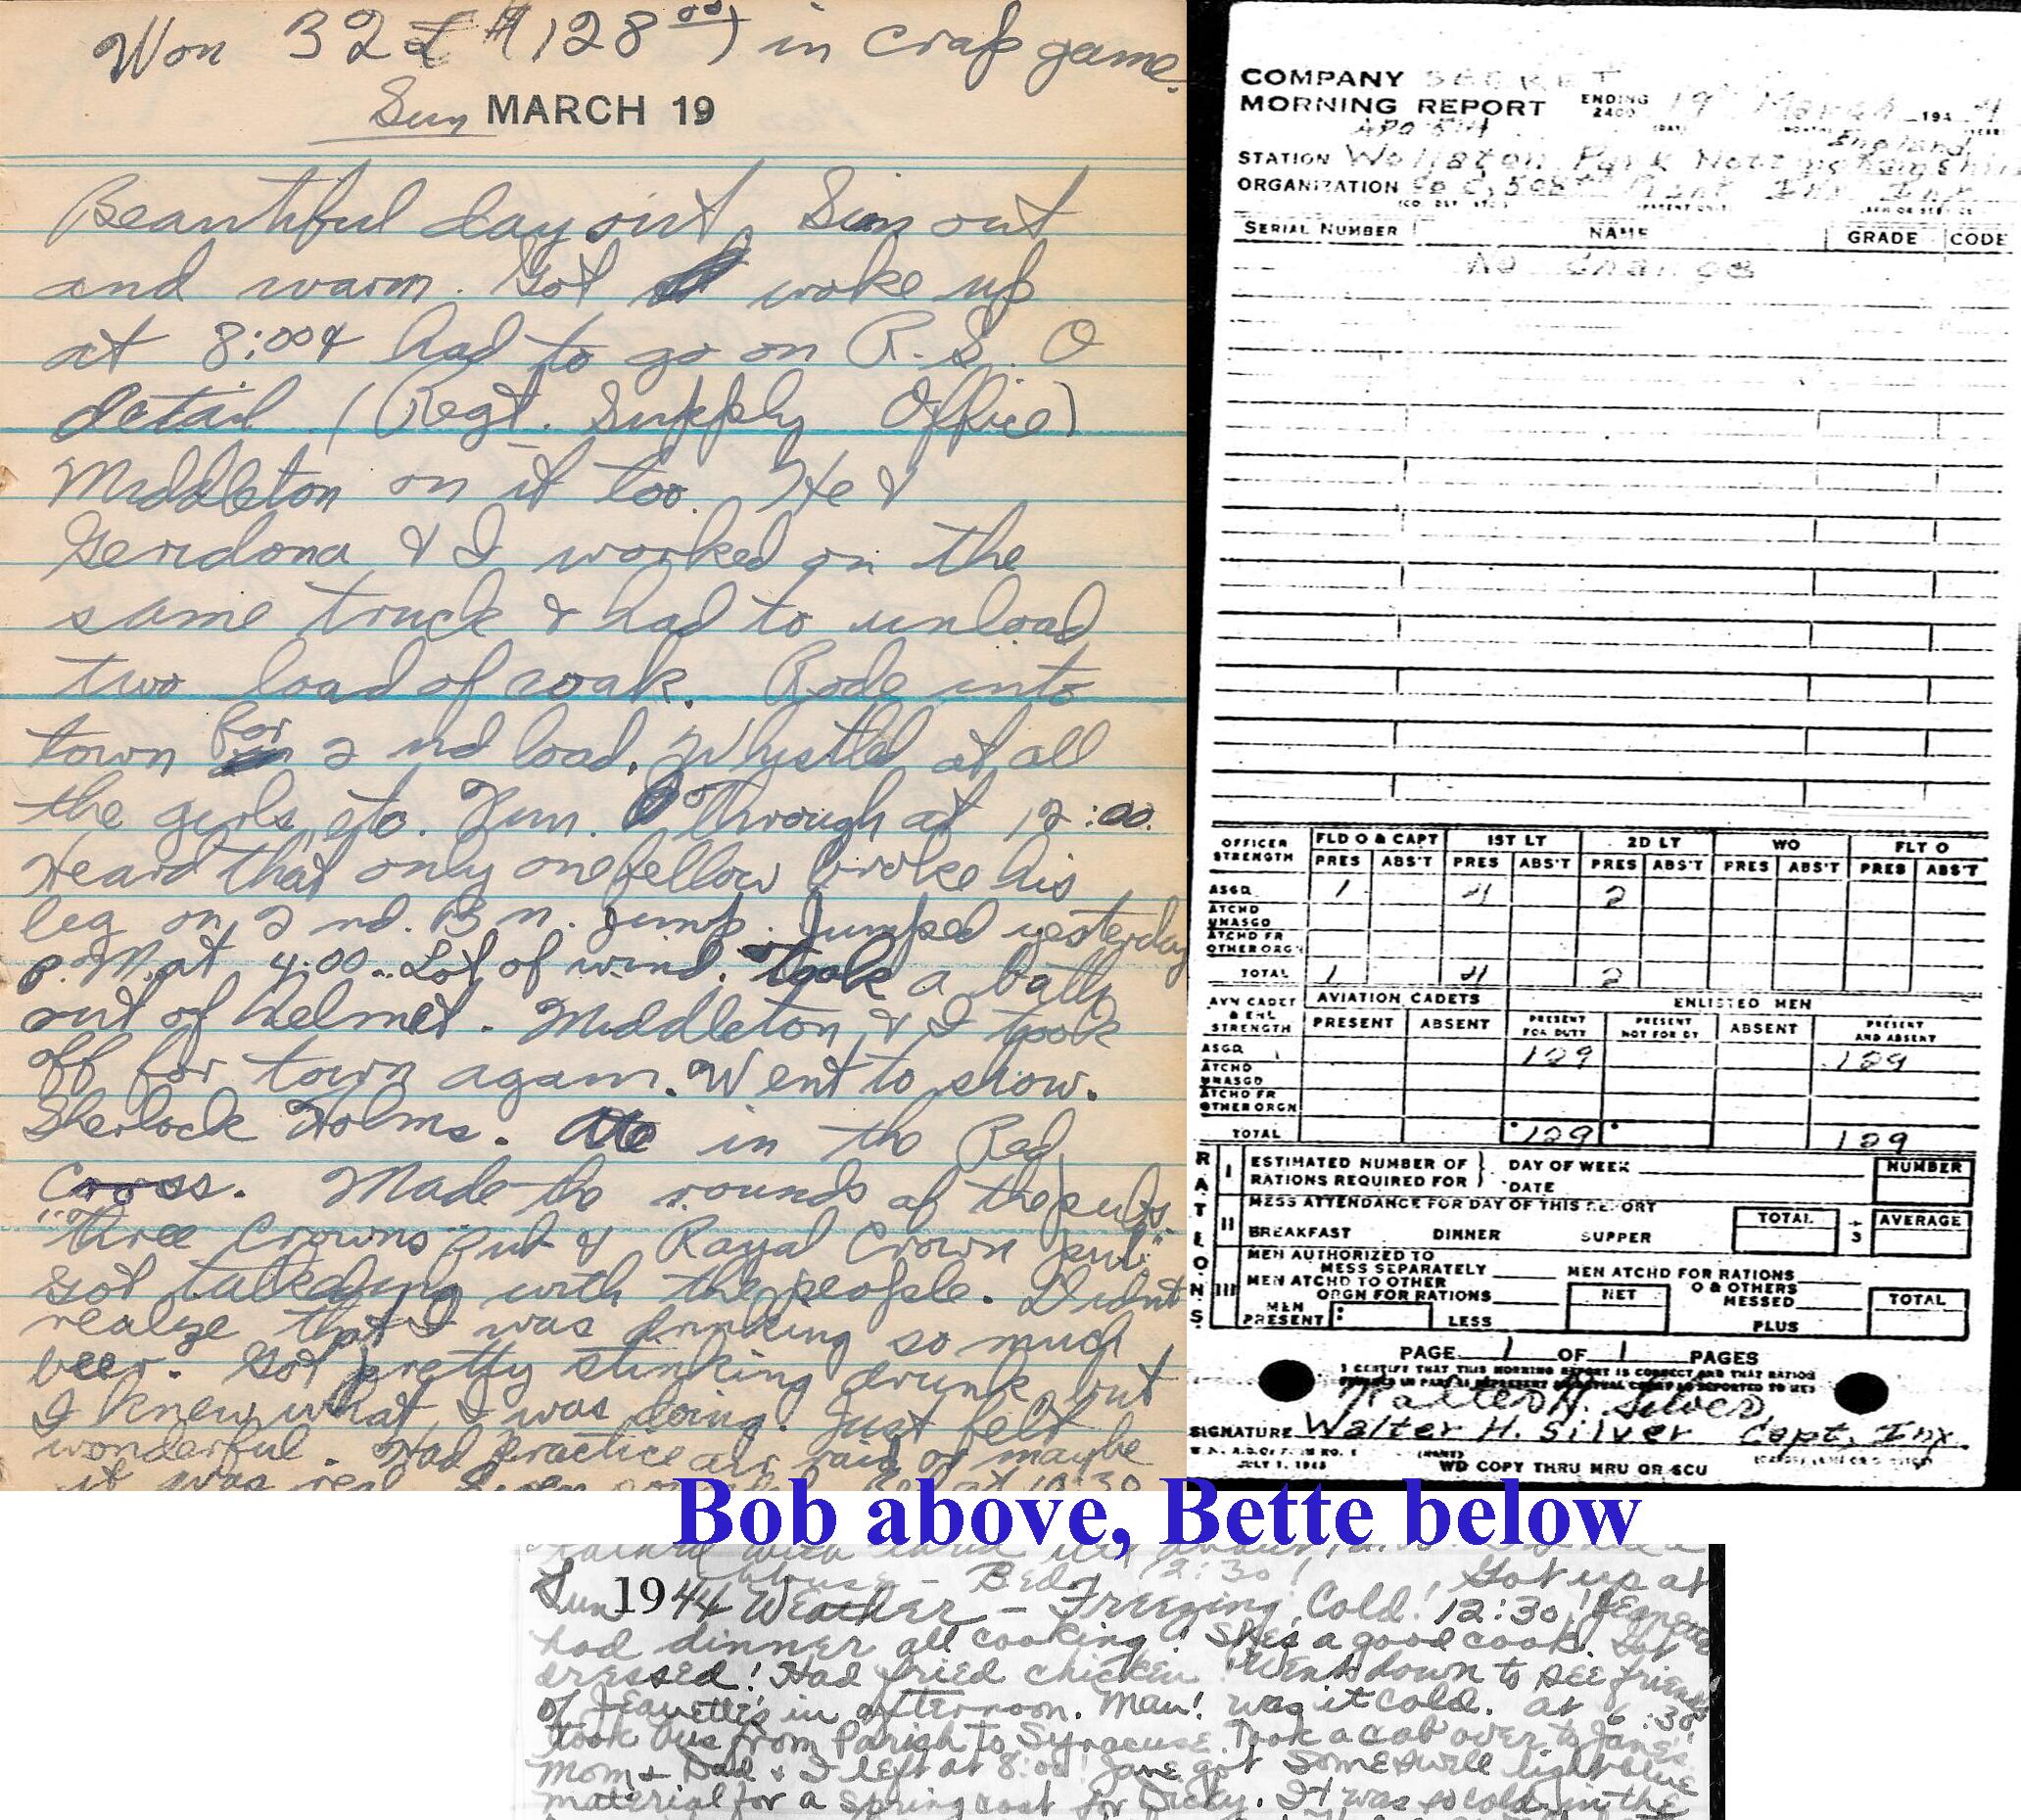 Won 32£ ($128.00) in crap game.
Sun MARCH 19
Beautiful day out. Sun out
and warm. Got woke up
at 8:00 & had to go on R.S.O
detail (Regt. Supply Office)
Middleton on it too. He &
Gendona & I worked on the
same truck & had to unload
two load of coak. Rode into
town for 2 nd load. Whistled at all
the girls, etc. Fun. Through at 12:00.
Heard that only one fellow broke his
leg on 2 nd. Bn. jump. Jumped yesterday
p.m. at 4:00. Lot of wind. Took a bath
out of helmet. Middleton & I took
off for town again. Went to show.
Sherlock Holms. Ate in the Red
Cross. Made the rounds of the pubs.
"Three Crowns" pub & "Royal Crown pub"
Got talking with the people. Didnt
realize that I was drinking so much
beer. Got pretty stinking drunk but
I knew what I was doing. Just felt
wonderful. Had practice air raid or maybe
it was real. 10:30
COMPANY SECRET
MORNING REPORT ENDING 2400 19 March 1944
APO 514 England
STATION Wollaton Park Nottinghamshire
ORGANIZATION Co C, 508th Prcht Inf Inf
SERIAL NUMBER NAME GRADE CODE
No change
OFFICER STRENGTH FLD O & CAPT 1ST LT 2D LT WO FLT O
PRES ABS'T PRES ABS'T PRES ABS'T PRES ABS'T PRES ABS'T
ASGD 1 4 2
ATCHD UNASGD
ATCHD FR OTHER ORGN
TOTAL 1 4 2
AVN CADET & ENL STRENGTH AVIATION CADETS ENLISTED MEN
PRESENT ABSENT PRESENT FOR DUTY PRESENT NOT FOR DY ABSENT PRESENT AND ABSENT
ASGD 129 129
ATCHD UNASGD
ATCHD FR OTHER ORGN
TOTAL 129 129
RATIONS
I ESTIMATED NUMBER OF RATIONS REQUIRED FOR } DAY OF WEEK DATE NUMBER
II MESS ATTENDANCE FOR DAY OF THIS REPORT
BREAKFAST DINNER SUPPER TOTAL ÷ 3 AVERAGE
III MEN AUTHORIZED TO MESS SEPARATELY MEN ATCHD FOR RATIONS
MEN ATCHD TO OTHER ORGN FOR RATIONS NET O & OTHERS MESSED TOTAL
MEN PRESENT: LESS PLUS
PAGE 1 OF 1 PAGES
I CERTIFY THAT THIS MORNING REPORT IS CORRECT AND THAT RATION
Walter H. Silver
SIGNATURE Walter H. Silver Capt, Inf.
JULY 1, 1943 WD COPY THRU MRU OR SCU
Bob above, Bette below
house - Bed 12:30! Got up at
Sun 1944 Weather - Freezing Cold! 12:30! Jeanette
had dinner all cooking! She's a good cook. Got
dressed! Had fried chicken! Went down to see friends
of Jeanette's in afternoon. Man! was it cold. At 6:30
took bus from Parish to Syracuse. Took a cab over to Jane's.
Mom & Dad & I left at 8:00! Jane got some swell light blue
material for a spring coat for Dicky. It was so cold in the